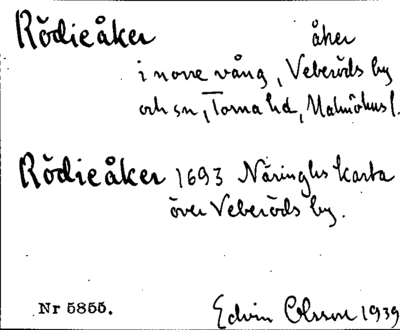 Rödieåker åker
i norre vång, Veberöds by
och sn, Torna hd, Malmöhus l.
Rödieåker 1693 Näringhs karta
över Veberöds by.
Nr 5855. Edvin Olsson 1939